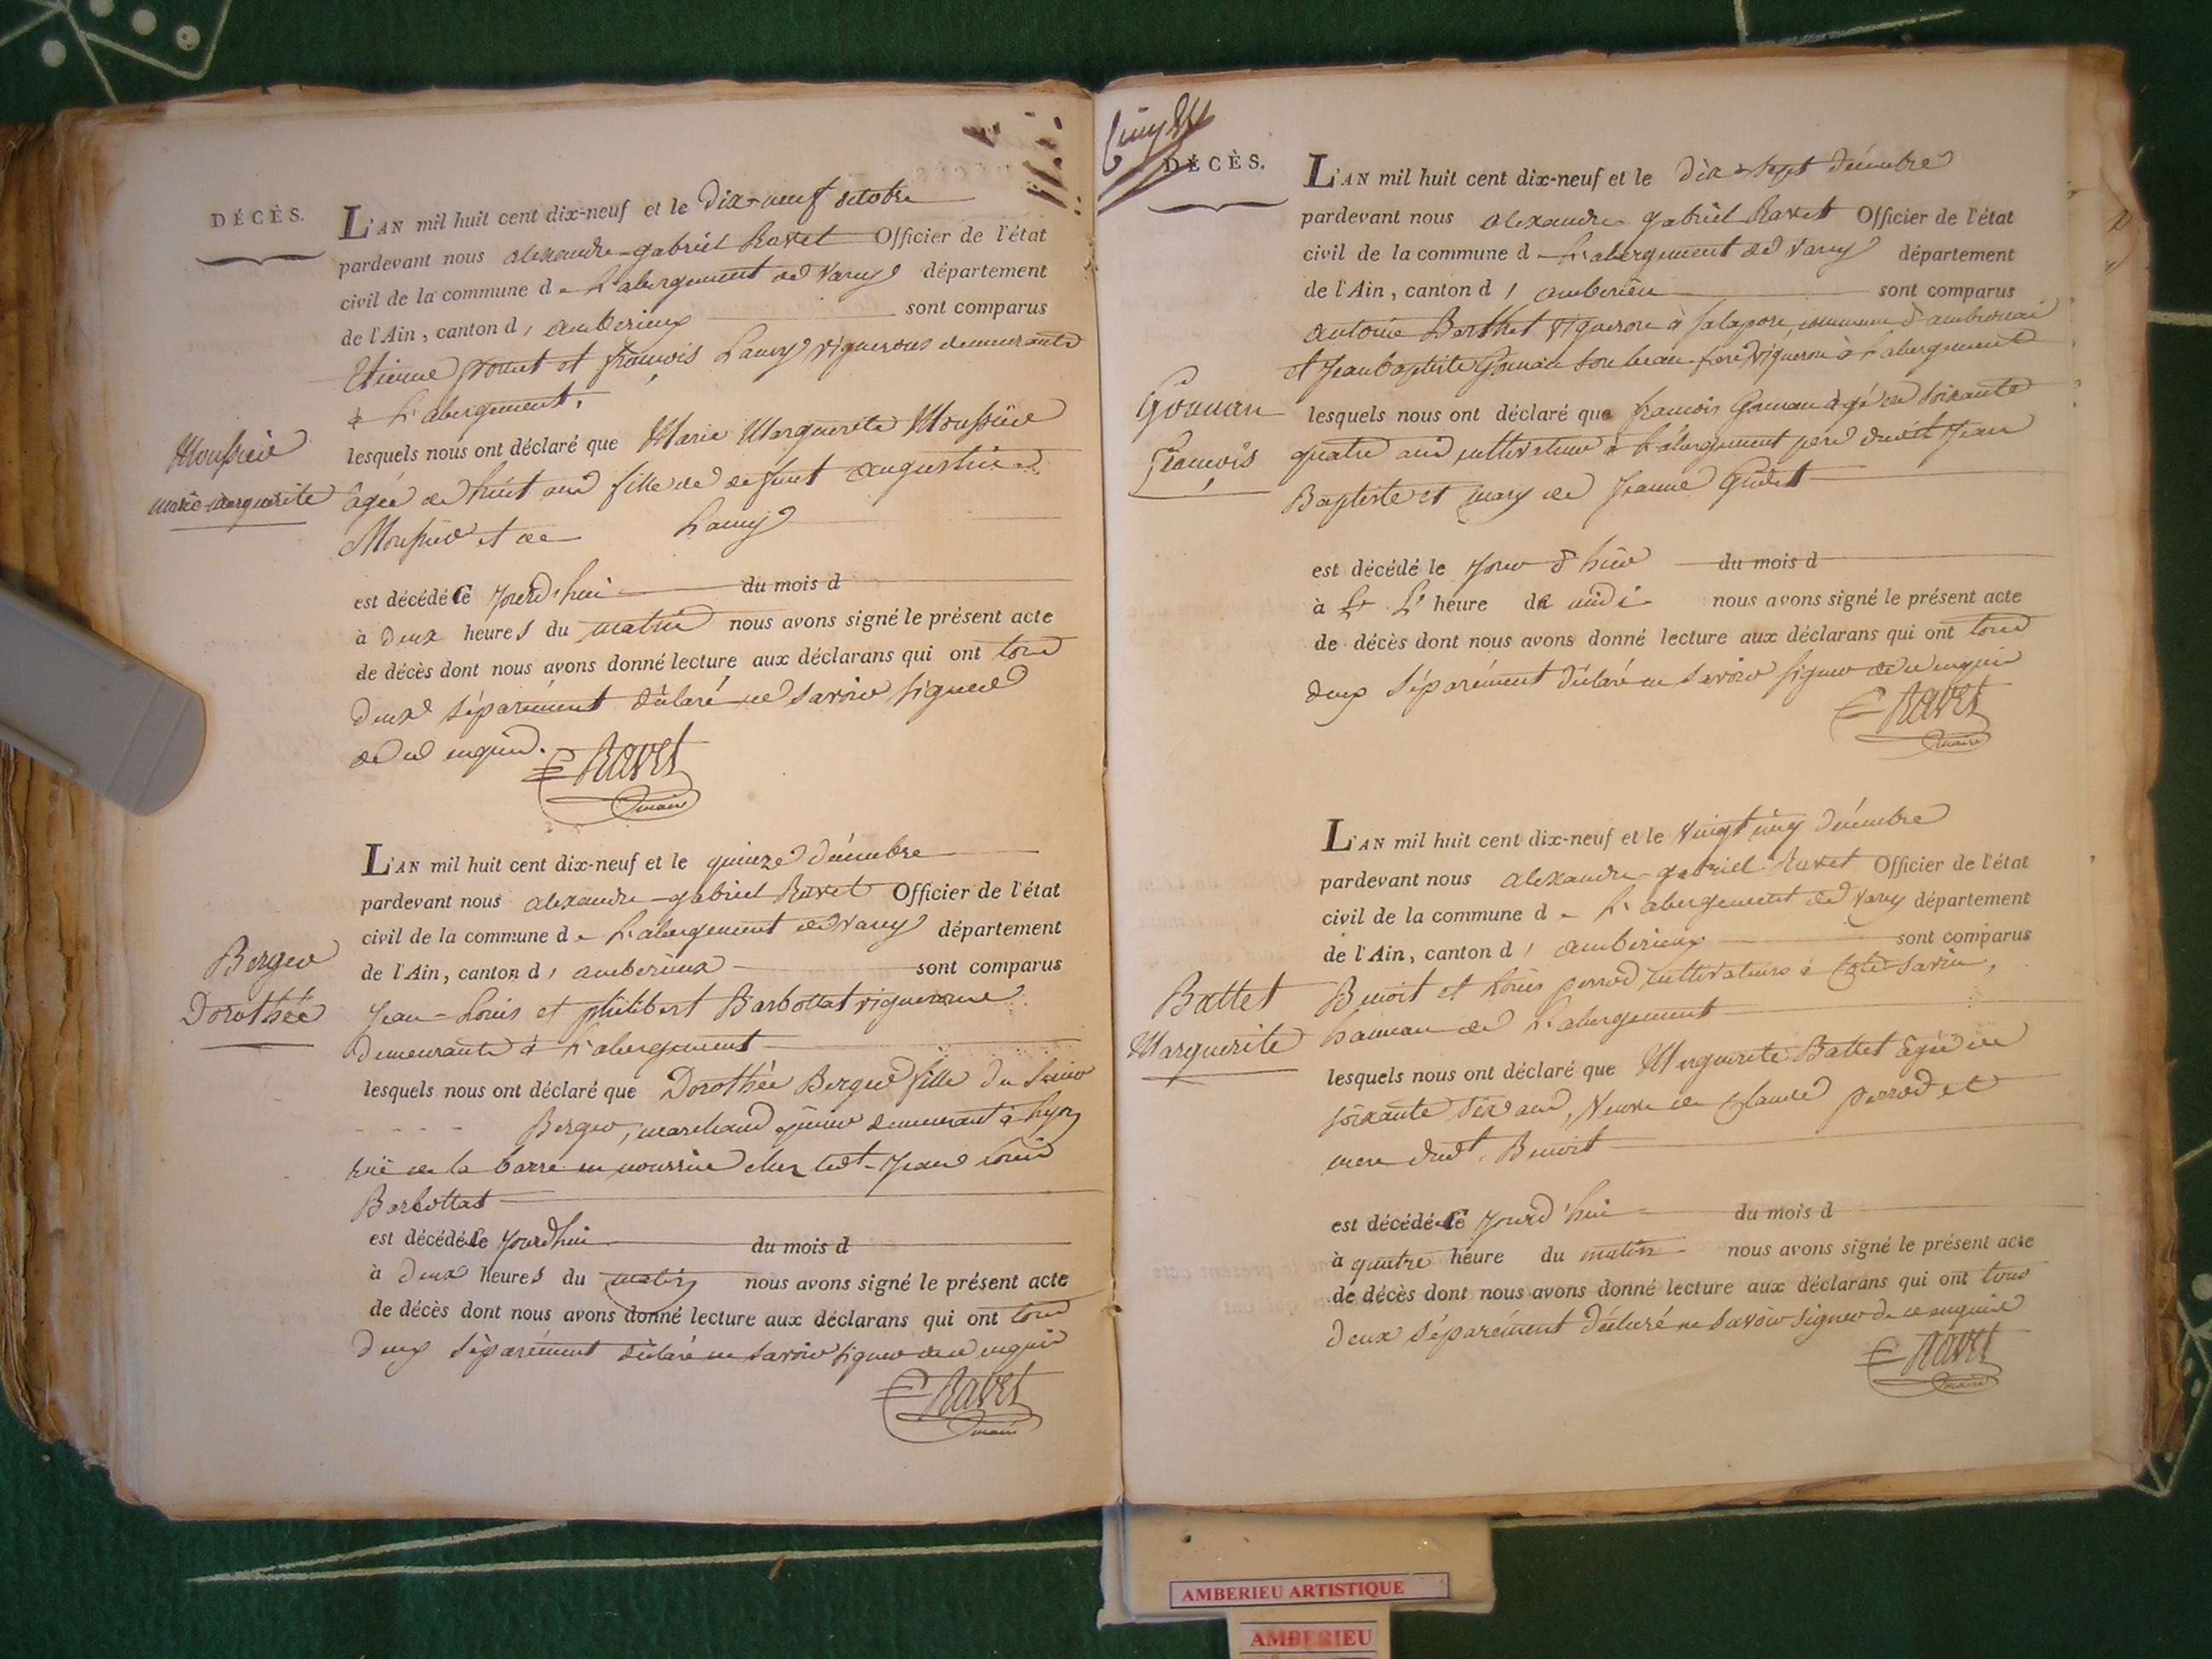 DÉCÈS.
L'AN mil huit cent dix-neuf et le dix-neuf octobre
pardevant nous alexandre-gabriel Ravet Officier de l'état
civil de la commune de L'abergement de Varey département
de l'Ain, canton d'amberieux sont comparus
Etienne et françois Lamy vignerons demeurants
à L'abergement.
Moussier
marie-marguerite
lesquels nous ont déclaré que Marie Marguerite Moussier
âgée de huit ans fille de defunt augustin
Moussier et de Lamy
est décédé Ce jourd'hui du mois d
à deux heures du matin nous avons signé le présent acte
de décès dont nous avons donné lecture aux déclarans qui ont tous
deux séparément déclaré ne savoir signer
de ce enquis.
Ravet
maire
L'AN mil huit cent dix-neuf et le quinze décembre
pardevant nous alexandre-gabriel Ravet Officier de l'état
civil de la commune de L'abergement de Varey département
de l'Ain, canton d'amberieux sont comparus
Berger
Dorothée
Jean-Louis et philibert Barbollat vignerons
demeurants à L'abergement
lesquels nous ont déclaré que Dorothée Berger fille du Sieur
Berger, marchand demeurant à Lyon
rue de la barre en nourrice chez led.t Jean Louis
Barbollat
est décédé Ce jourd'hui du mois d
à deux heures du matin nous avons signé le présent acte
de décès dont nous avons donné lecture aux déclarans qui ont tous
deux séparément déclaré ne savoir signer de ce enquis
Ravet
maire
DÉCÈS.
L'AN mil huit cent dix-neuf et le dix-sept décembre
pardevant nous alexandre gabriel Ravet Officier de l'état
civil de la commune de L'abergement de Varey département
de l'Ain, canton d'amberieu sont comparus
antoine Berthet vigneron à Salapore, commune d'ambronai
et Jean baptiste Gonnan son beau-frere vigneron à L'abergement
Gonnan
François
lesquels nous ont déclaré que francois Gonnan âgé de soixante
quatre ans cultivateur à L'abergement pere dudit Jean
Baptiste et mary de Jeanne
est décédé le jour d'hier du mois d
à L'heure de midi nous avons signé le présent acte
de décès dont nous avons donné lecture aux déclarans qui ont tous
deux séparément déclaré ne savoir signer de ce enquis
Ravet
maire
L'AN mil huit cent dix-neuf et le vingt cinq décembre
pardevant nous alexandre-gabriel Ravet Officier de l'état
civil de la commune de L'abergement de Varey département
de l'Ain, canton d'amberieux sont comparus
Battet
Marguerite
Benoit et Louis perrod cultivateurs à Coté-Savin,
hameau de L'abergement
lesquels nous ont déclaré que Marguerite Battet âgée de
soixante dix ans, Veuve de Claude perrod et
mere dud.t Benoit
est décédé Ce jourd'hui du mois d
à quatre heure du matin nous avons signé le présent acte
de décès dont nous avons donné lecture aux déclarans qui ont tous
deux séparément déclaré ne savoir signer de ce enquis
Ravet
maire
AMBERIEU ARTISTIQUE
AMBERIEU